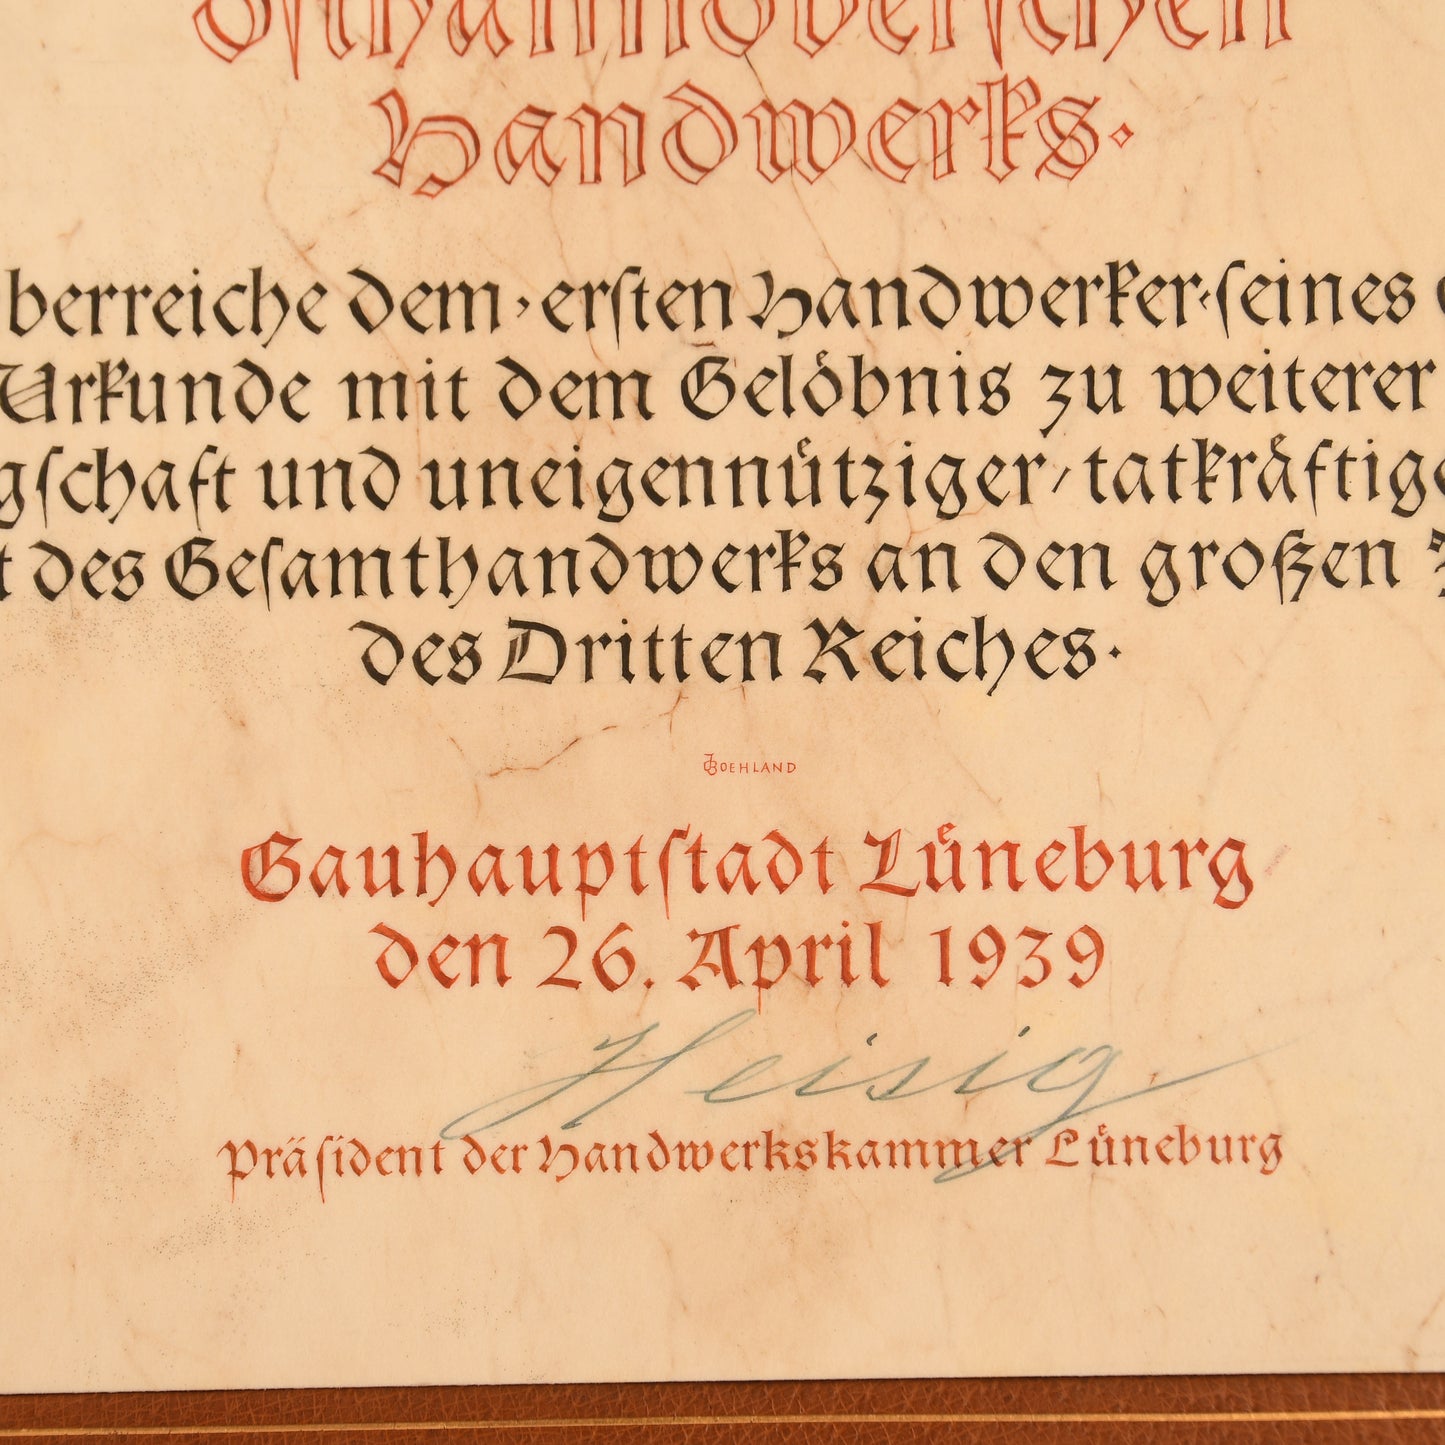 osthannoverschen
Handwerks.
berreiche dem ersten Handwerker seines
Urkunde mit dem Gelöbnis zu weiterer
gschaft und uneigennütziger, tatkräftige
t des Gesamthandwerks an den großen
des Dritten Reiches.
JBOEHLAND
Gauhauptstadt Lüneburg
den 26. April 1939
Heisig
Präsident der Handwerkskammer Lüneburg